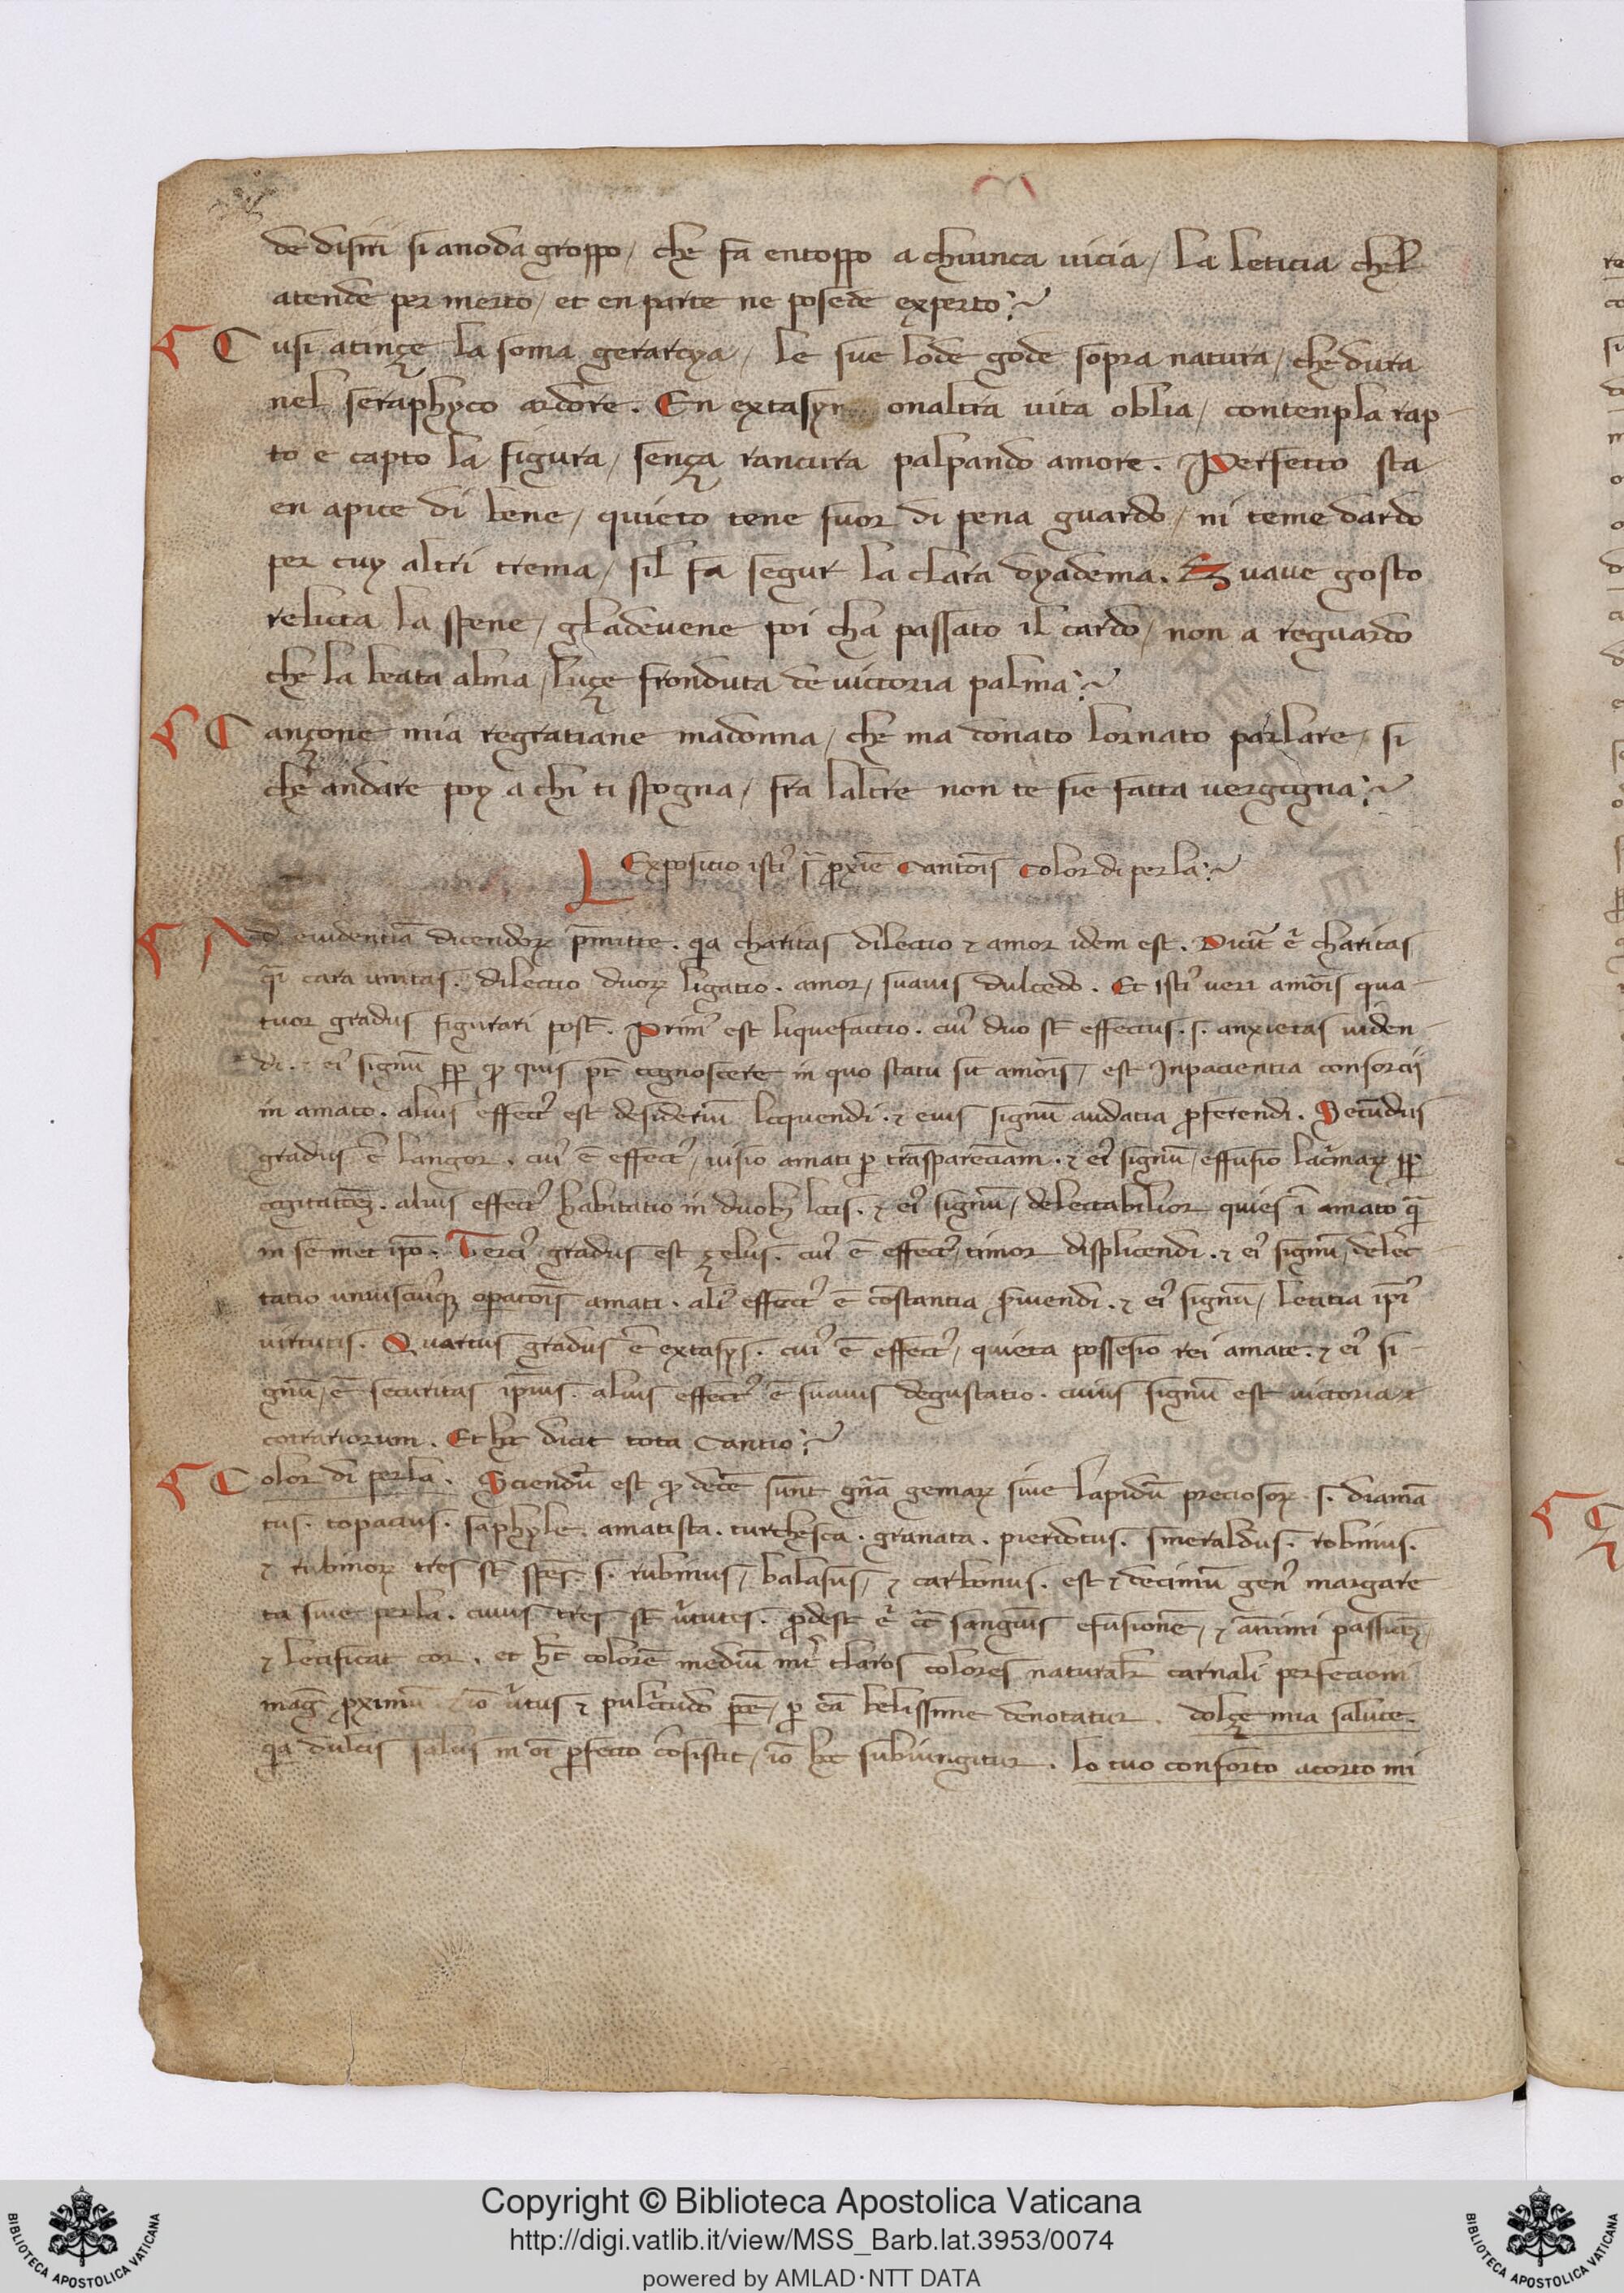 de disiri si anoda groppo / che fa entoppo a chiunca uicia / La leticia chel
atende per merto / et en parte ne posede experto
Cusi atinçe la soma gerarcya / le sue lode gode sopra natura / che dura
nel seraphyco ardore. En extasy onaltra uita oblia / contenpla rap-
to e capto la figura / sença rancura palpando amore. Perfetto sta
en apice di bene / quieto tene fuor di pena guardo / ni teme dardo
per cuy altri trema / sil fa segur la clara dyadema. Suaue gosto
relicta la spene / gladeuene poi cha passato il cardo / non a reguardo
che la beata alma / luçe fronduta de uictoria palma
Cançone mia regratiane madonna / che ma donato lornato parlare / si
che andare poy a chi ti spogna / fra laltre non te fie fatta uergogna
Expositio isti' s' proxie Cantois Color di perla
Ad euidentia dicendoꝝ pmitte. qa charitas dilectio ⁊ amor idem est. Dicit' e' charitas
qi cara unitas. dilectio duoꝝ ligatio. amor / suauis dulcedo. Et isti' ueri amois qua-
tuor gradus figurari post. Prim' est liquefactio. cui' duo st effectus. s. anxietas uiden-
di. ⁊ ei' signu pp qd quis pt cognoscere in quo statu sit amois / est Inpacientia consorcii
in amato. alius effect' est desideriu loquendi. ⁊ eius signu audatia pferendi. Secundus
gradus e langor. cui' e effect' / uisio amati p trasparenciam. ⁊ ei' signu / effusio lacrimaꝝ pp
cogitatoez. alius effect' habitatio in duobꝫ locis. ⁊ ei' signu / delectabilior quies i amato q
in semet ipo. Terci' gradus est zelus. cui' e effect' / timor displicendi. ⁊ ei' signu / delec-
tatio uniuscuiqꝫ opatois amati. ali' effect' e costantia pseuendi. ⁊ ei' signu / letitia ipi'
uirtutis. Quartus gradus e extasys. cui' e effect' / quieta possesio rei amate. ⁊ ei' si-
gnu / e securitas ipius. alius effect' e suauis degustatio. cuius signu est uictoria
cotrariorum. Et hec dicit tota Cantio
Color di perla. Sciendu est qd dece sunt gna gemaꝝ siue lapidu preciosoꝝ s. diama
tus. topacius. saphyle. amatista. turchesca. granata. pierdotus. smeraldus. robinus.
⁊ rubinoꝝ tres st spes s. rubinus / balasus / ⁊ carbonus. est ⁊ decimu gen' margare
ta siue perla. cuius tres st u'tutes. pdest e' ct sanguis efusione / ⁊ animi passioeꝫ /
⁊ letificat cor. et ht colore mediu int' claros colores naturalr carnali perfectioni
mag proximu io u'tus ⁊ pulcitudo / p ea belissime denotatur. dolçe mia salute.
qa dulcis salus in oi pfecto cosistit / io hec subiungitur. Lo tuo conforto acorto mi
Copyright © Biblioteca Apostolica Vaticana
http://digi.vatlib.it/view/MSS_Barb.lat.3953/0074
powered by AMLAD·NTT DATA
BIBLIOTECA APOSTOLICA VATICANA
BIBLIOTECA APOSTOLICA VATICANA